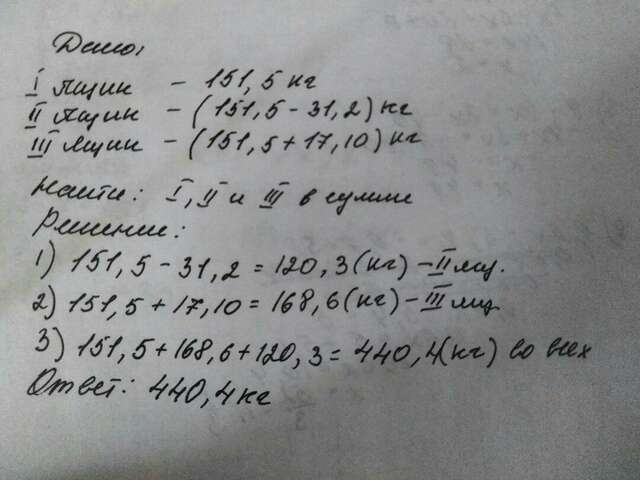 Дано:
I ящик - 151,5 кг
II ящик - (151,5 - 31,2) кг
III ящик - (151,5 + 17,10) кг
Найти: I, II и III в сумме
Решение:
1) 151,5 - 31,2 = 120,3 (кг) - II ящ.
2) 151,5 + 17,10 = 168,6 (кг) - III ящ.
3) 151,5 + 168,6 + 120,3 = 440,4 (кг) во всех
Ответ: 440,4 кг